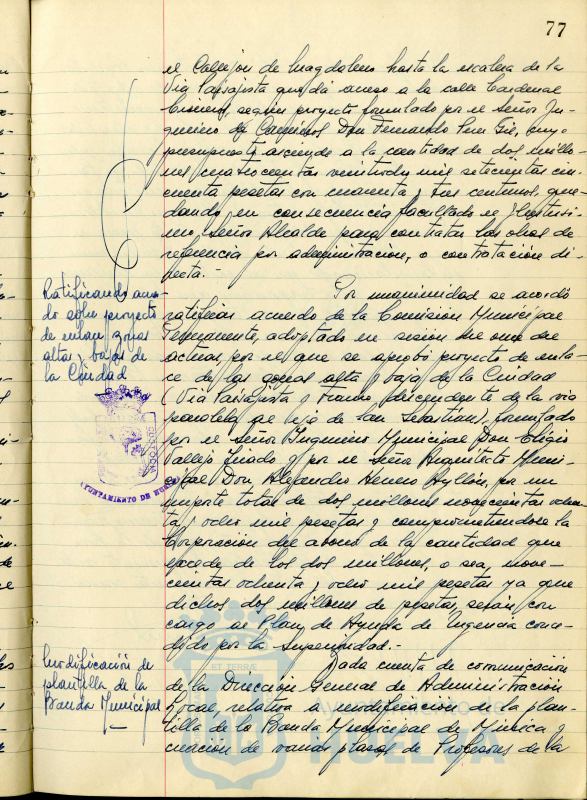 77
el Callejón de Magdalena hasta la escalera de la
Vía Paisajista que dá acceso a la calle Cardenal
Cisneros, según proyecto formulado por el Señor In-
geniero de Caminos Don Fernando
presupuesto asciende a la cantidad de dos millo-
nes cuatrocientas veintiocho mil setecientas cin-
cuenta pesetas con cuarenta y tres centimos, que-
dando, en consecuencia facultado el Ilustrísi-
mo, señor Alcalde para contratar las obras de
referencia por administración, o contratación di-
recta.-
Ratificando acuer-
do sobre proyecto
de enlace zonas
altas y bajas de
la Ciudad
Por unanimidad se acordó
ratificar acuerdo de la Comisión Municipal
Permanente, adoptado en sesión del once del
actual, por el que se aprobó proyecto de enla-
ce de las zonas alta y baja de la Ciudad
(Vía Paisajista y tramo descendente de la vía
paralela al eje de San Sebastian), formulado
por el Señor Ingeniero Municipal Don Eligio
Vallejo y por el Señor Arquitecto Muni-
cipal Don Alejandro Herrero Ayllón, por un
importe total de dos millones novecientas ochen-
ta y ocho mil pesetas y comprometiendose la
Corporación al abono de la cantidad que
exceda de los dos millones, o sea, nove-
cientas ochenta y ocho mil pesetas ya que
dichos dos millones de pesetas, serán con
cargo al Plan de Ayuda de Urgencia conce-
dido por la Superioridad.-
AYUNTAMIENTO DE HUELVA
Modificación de
plantilla de la
Banda Municipal
Dada cuenta de comunicación
de la Dirección General de Administración
Local, relativa a modificación de la plan-
tilla de la Banda Municipal de Música y
creación de varias plazas de Profesores de la
ET TERRÆ
Ayuntamiento de
HUELVA